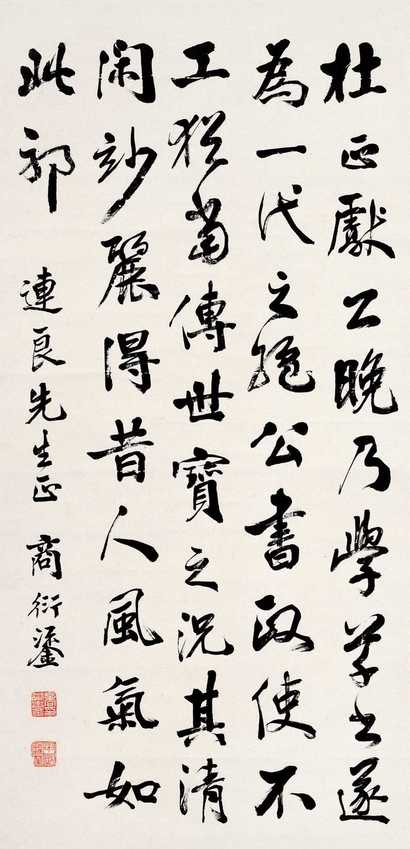 杜正獻公晚乃學草書遂
為一代之絕公書政使不
工猶當傳世寶之況其清
閑妙麗得昔人風氣如
此耶
連良先生正 商衍鎏